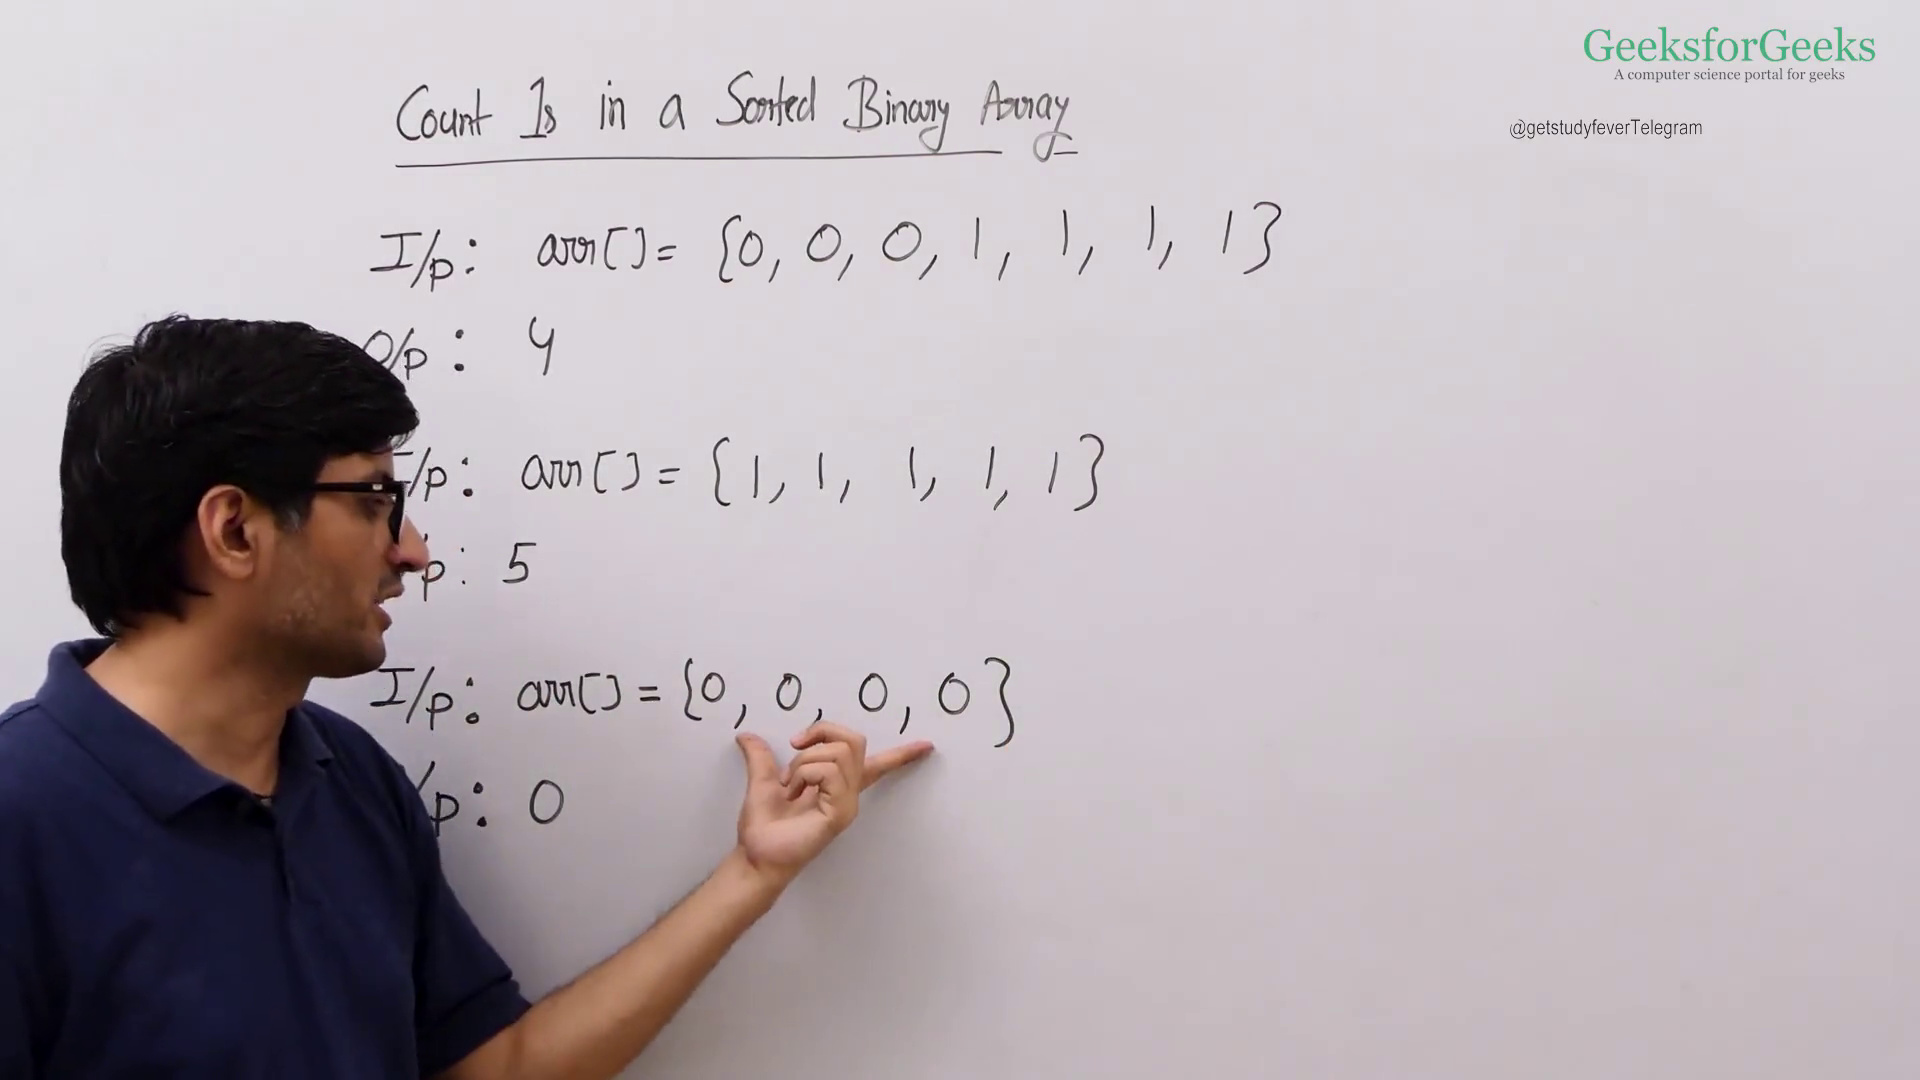 GeeksforGeeks
A computer science portal for geeks
@getstudyfeverTelegram
Count 1s in a Sorted Binary Array
I/p: arr[] = {0, 0, 0, 1, 1, 1, 1}
O/p: 4
/p: arr[] = {1, 1, 1, 1, 1}
p: 5
I/p: arr[] = {0, 0, 0, 0}
/p: 0